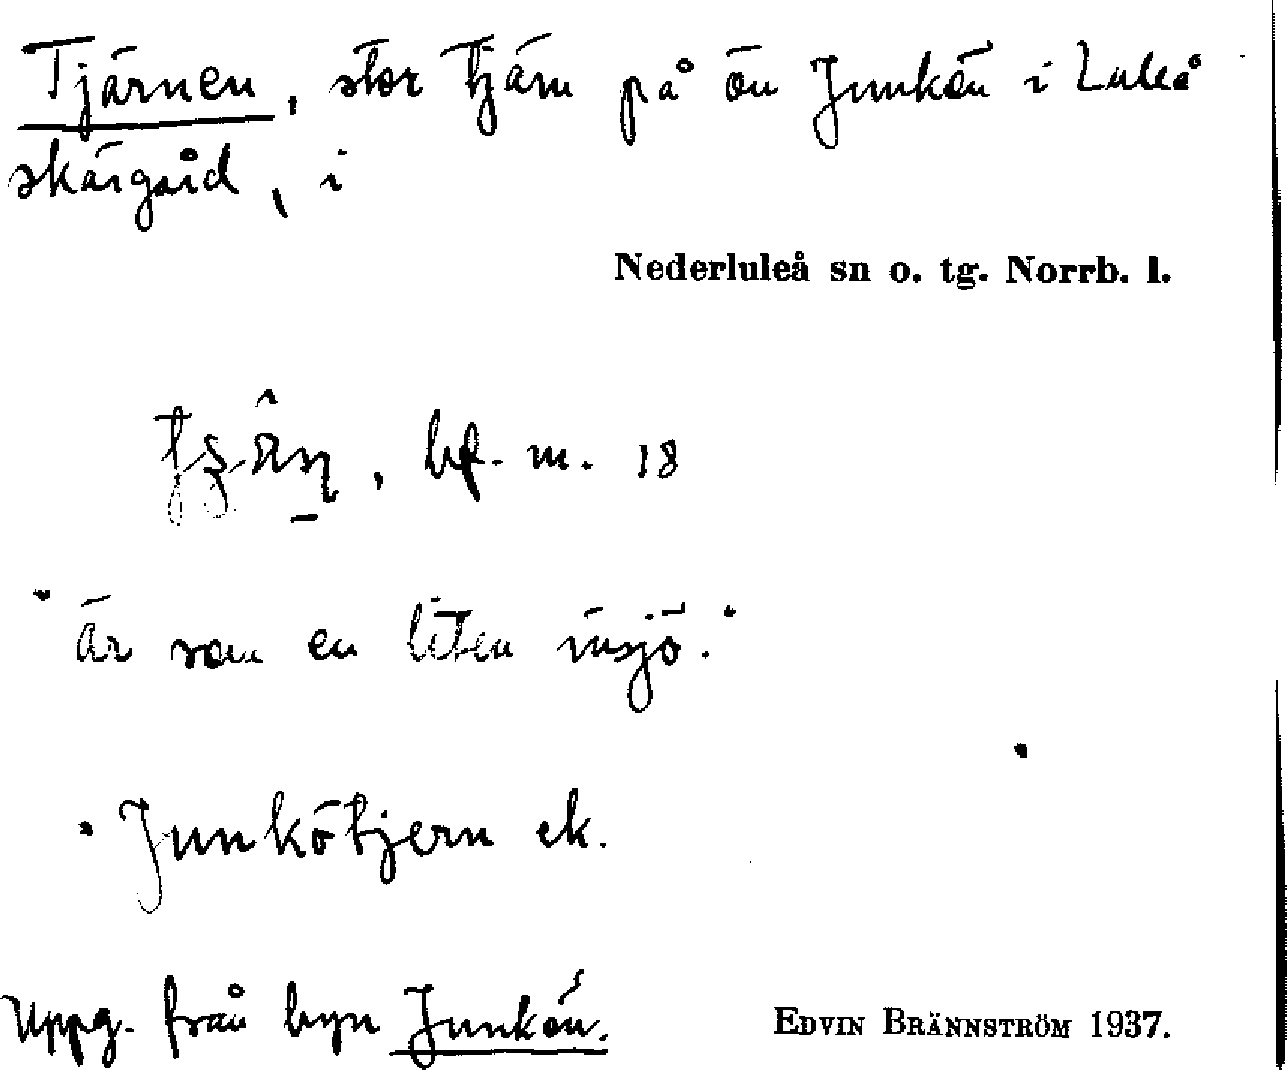 Tjärnen, stor tjärn på ön Junkön i Luleå
skärgård, i
Nederluleå sn o. tg. Norrb. l.
bf. m. 18
"är som en liten insjö."
Junkötjern ek.
Uppg. från byn Junkön.
EDVIN BRÄNNSTRÖM 1937.